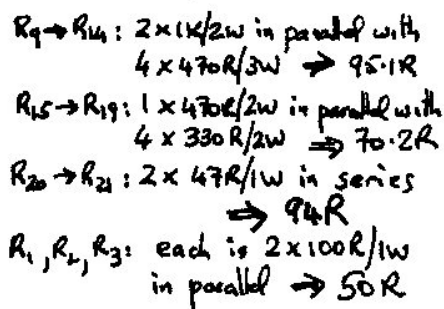 R9→R14: 2×1K/2W in parallel with
4×470R/3W ⇒ 95.1R
R15→R19: 1×470R/2W in parallel with
4×330R/2W ⇒ 70.2R
R20→R21: 2×47R/1W in series
⇒ 94R
R1, R2, R3: each is 2×100R/1W
in parallel ⇒ 50R